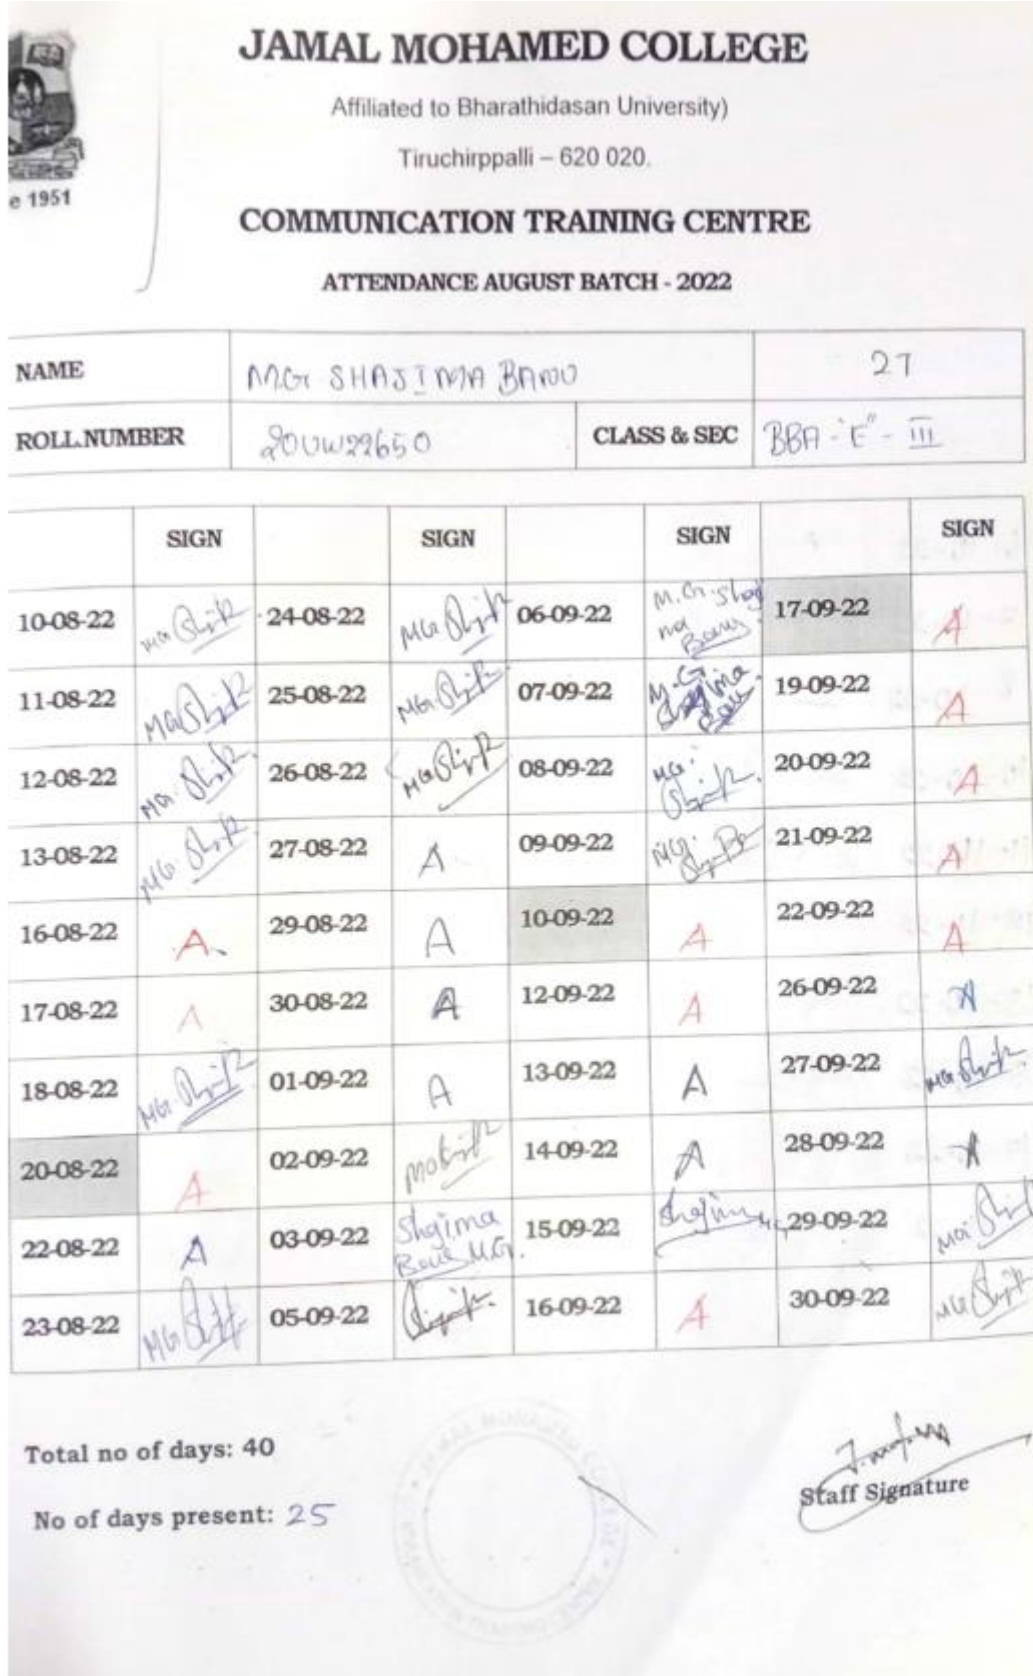 JAMAL MOHAMED COLLEGE
Affiliated to Bharathidasan University)
Tiruchirppalli – 620 020.
e 1951
COMMUNICATION TRAINING CENTRE
ATTENDANCE AUGUST BATCH - 2022
NAME M.G. SHAJIMA BANU 27
ROLL.NUMBER 20UW22650 CLASS & SEC BBA - "E" - III
SIGN SIGN SIGN SIGN
10-08-22 MG 24-08-22 MG 06-09-22 M.G. Shaji ma Banu 17-09-22 A
11-08-22 MG 25-08-22 MG 07-09-22 M.G Shajima Banu 19-09-22 A
12-08-22 MG 26-08-22 MG 08-09-22 MG 20-09-22 A
13-08-22 MG 27-08-22 A 09-09-22 MG 21-09-22 A
16-08-22 A 29-08-22 A 10-09-22 A 22-09-22 A
17-08-22 A 30-08-22 A 12-09-22 A 26-09-22 A
18-08-22 MG 01-09-22 A 13-09-22 A 27-09-22 MG
20-08-22 A 02-09-22 14-09-22 A 28-09-22 A
22-08-22 A 03-09-22 Shajima Banu M.G. 15-09-22 Shajima 29-09-22 MG
23-08-22 MG 05-09-22 16-09-22 A 30-09-22 MG
Total no of days: 40
No of days present: 25
Staff Signature